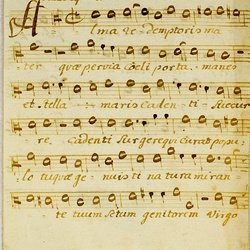 Alma re- demptoris ma
ter quæ pervia Cœli porta manes
et stella maris caden- ti succur
re cadenti surgere qui curat popu-
lo tu quæ ge- nuisti natura miran-
te tuum Sctum genitorem Virgo